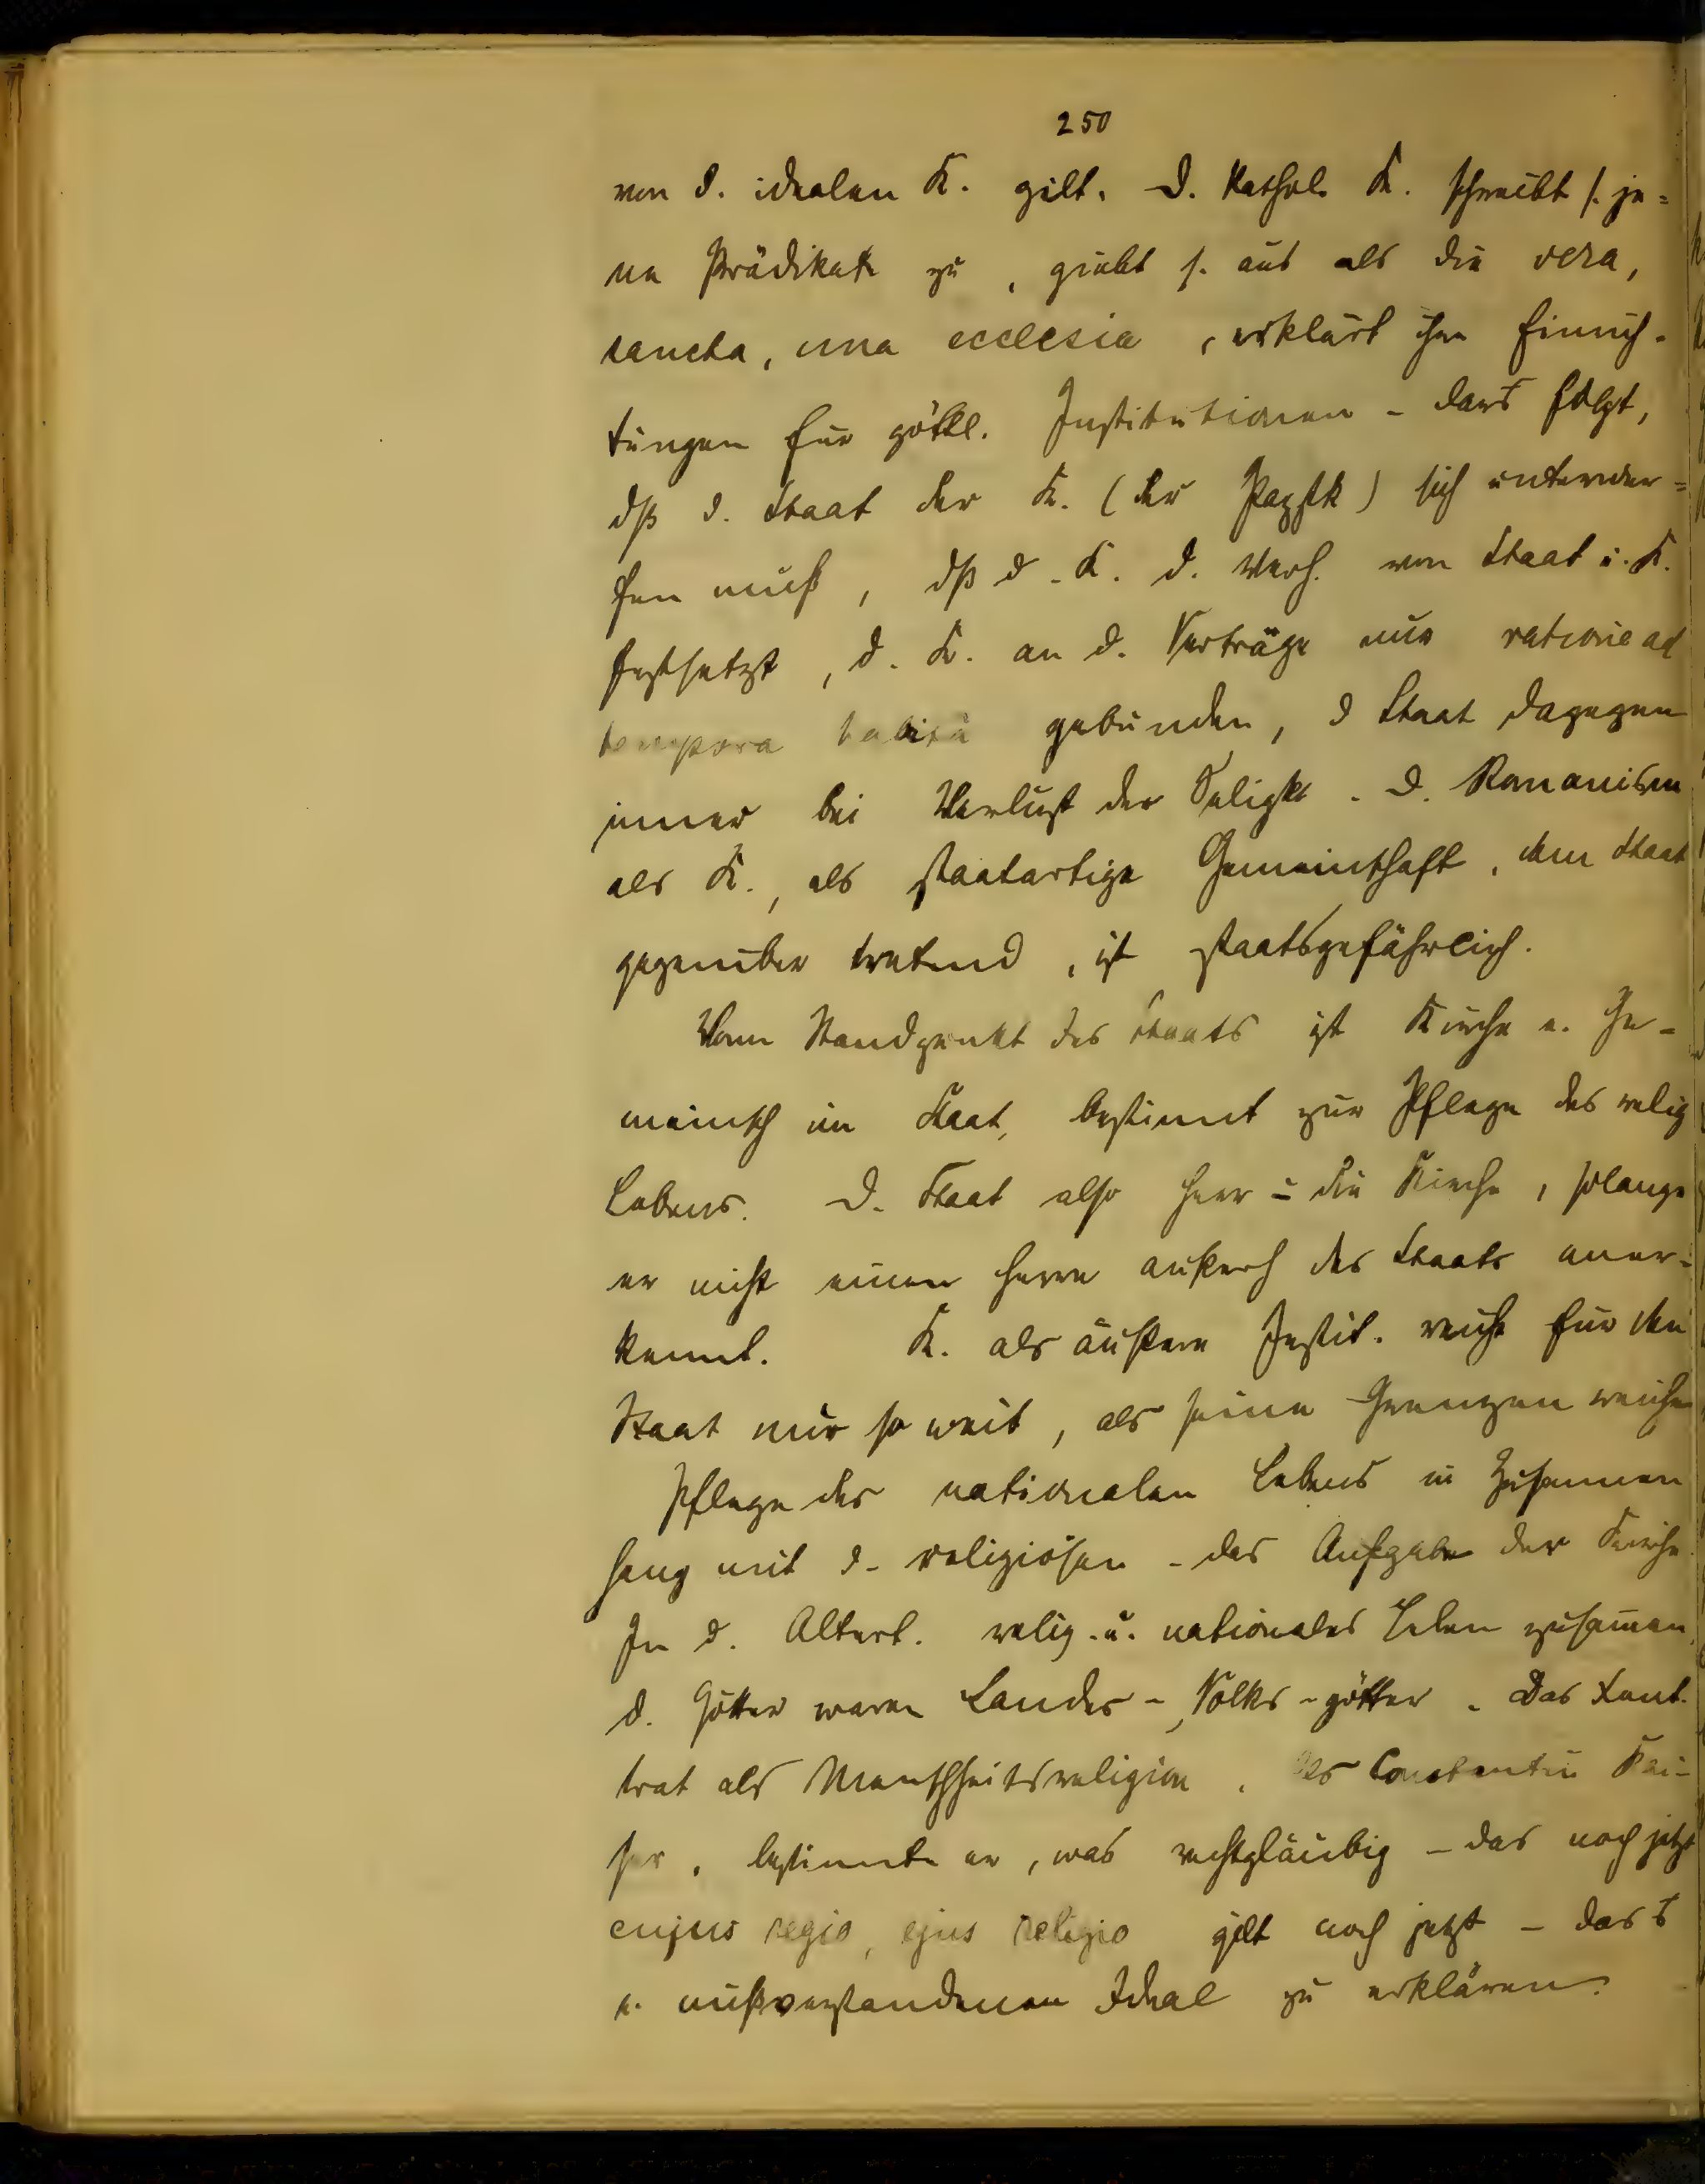 250
von d. idealen K. gilt. D. kathol. K. schreibt s. je=
ne Prädikate zu, giebt s. aus als die vera,
sancta, una ecclesia, erklärt ihre Einrich-
tungen für göttl. Institutionen - daraus folgt,
dß d. Staat der K. (der Papstk) sich unterwer=
fen muß, dß d. K. d. Verh. von Staat u. K.
festsetzt, d. K. an d. Verträge nur ratione ad
tempora habita gebunden, d Staat dagegen
immer bei Verlust der Seligkt. D. Romanism
als K., als staatartige Gemeinschaft, dem Staat
gegenüber tretend, ist staatsgefährlich.
Vom Standpunkt des Staats ist Kirche e. Ge-
meinsch im Staat, bestimmt zur Pflege des relig
Lebens. D. Staat also Herr ü die Kirche, solange
er nicht einen Herrn außerh des Staats aner-
kennt. K. als äußere Instit. reicht für den
Staat nur so weit, als seine Grenzen reichen
Pflege des nationalen Lebens in Zusammen
hang mit d. religiösen - das Aufgabe der Kirche.
In d. Altert. relig. u. nationales Leben zusammen,
d. Götter waren Landes-, Volks-götter. Das
trat als Menschheitsreligion. Als Constantin Kai-
ser, bestimmte er, was rechtgläubig - das noch jetzt
cujus regio, ejus religio gilt noch jetzt -
e. mißverstandenen Ideal zu erklären.